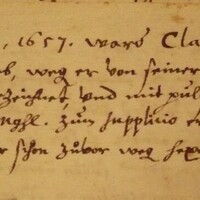 , 1657. ward Cla
b, weg er von seiner
zeichnet, vnd mit pul
nghl. zum supplicio
r schon zuvor weg hex